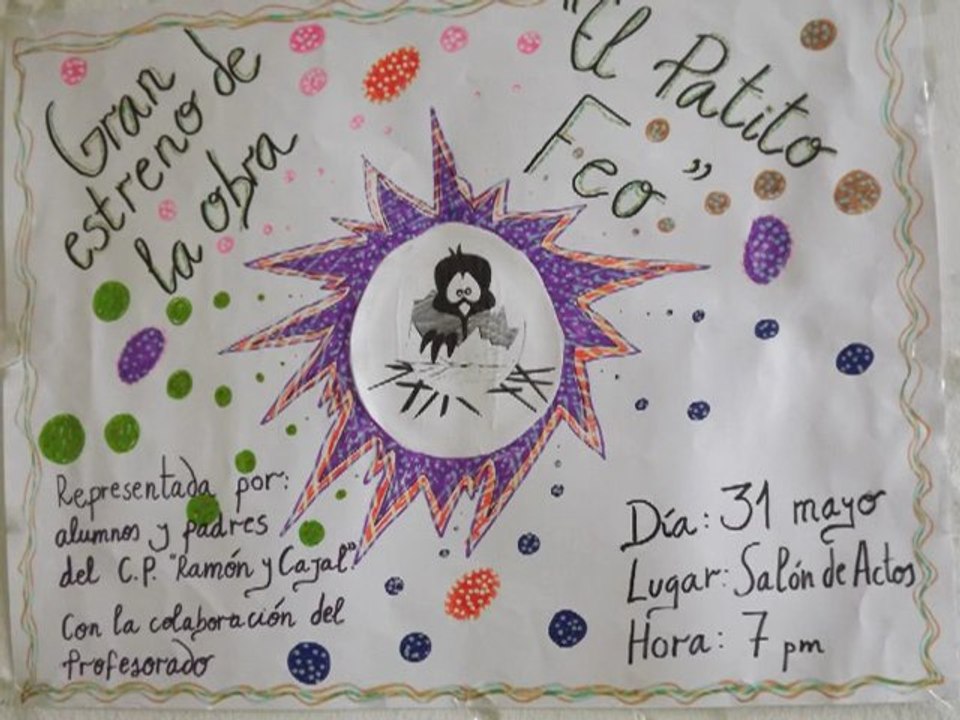 Gran
estreno de
la obra
"El Patito
Feo"
Representada por:
alumnos y padres
del C.P. "Ramón y Cajal".
Con la colaboración del
Profesorado
Día: 31 mayo
Lugar: Salón de Actos
Hora: 7 pm